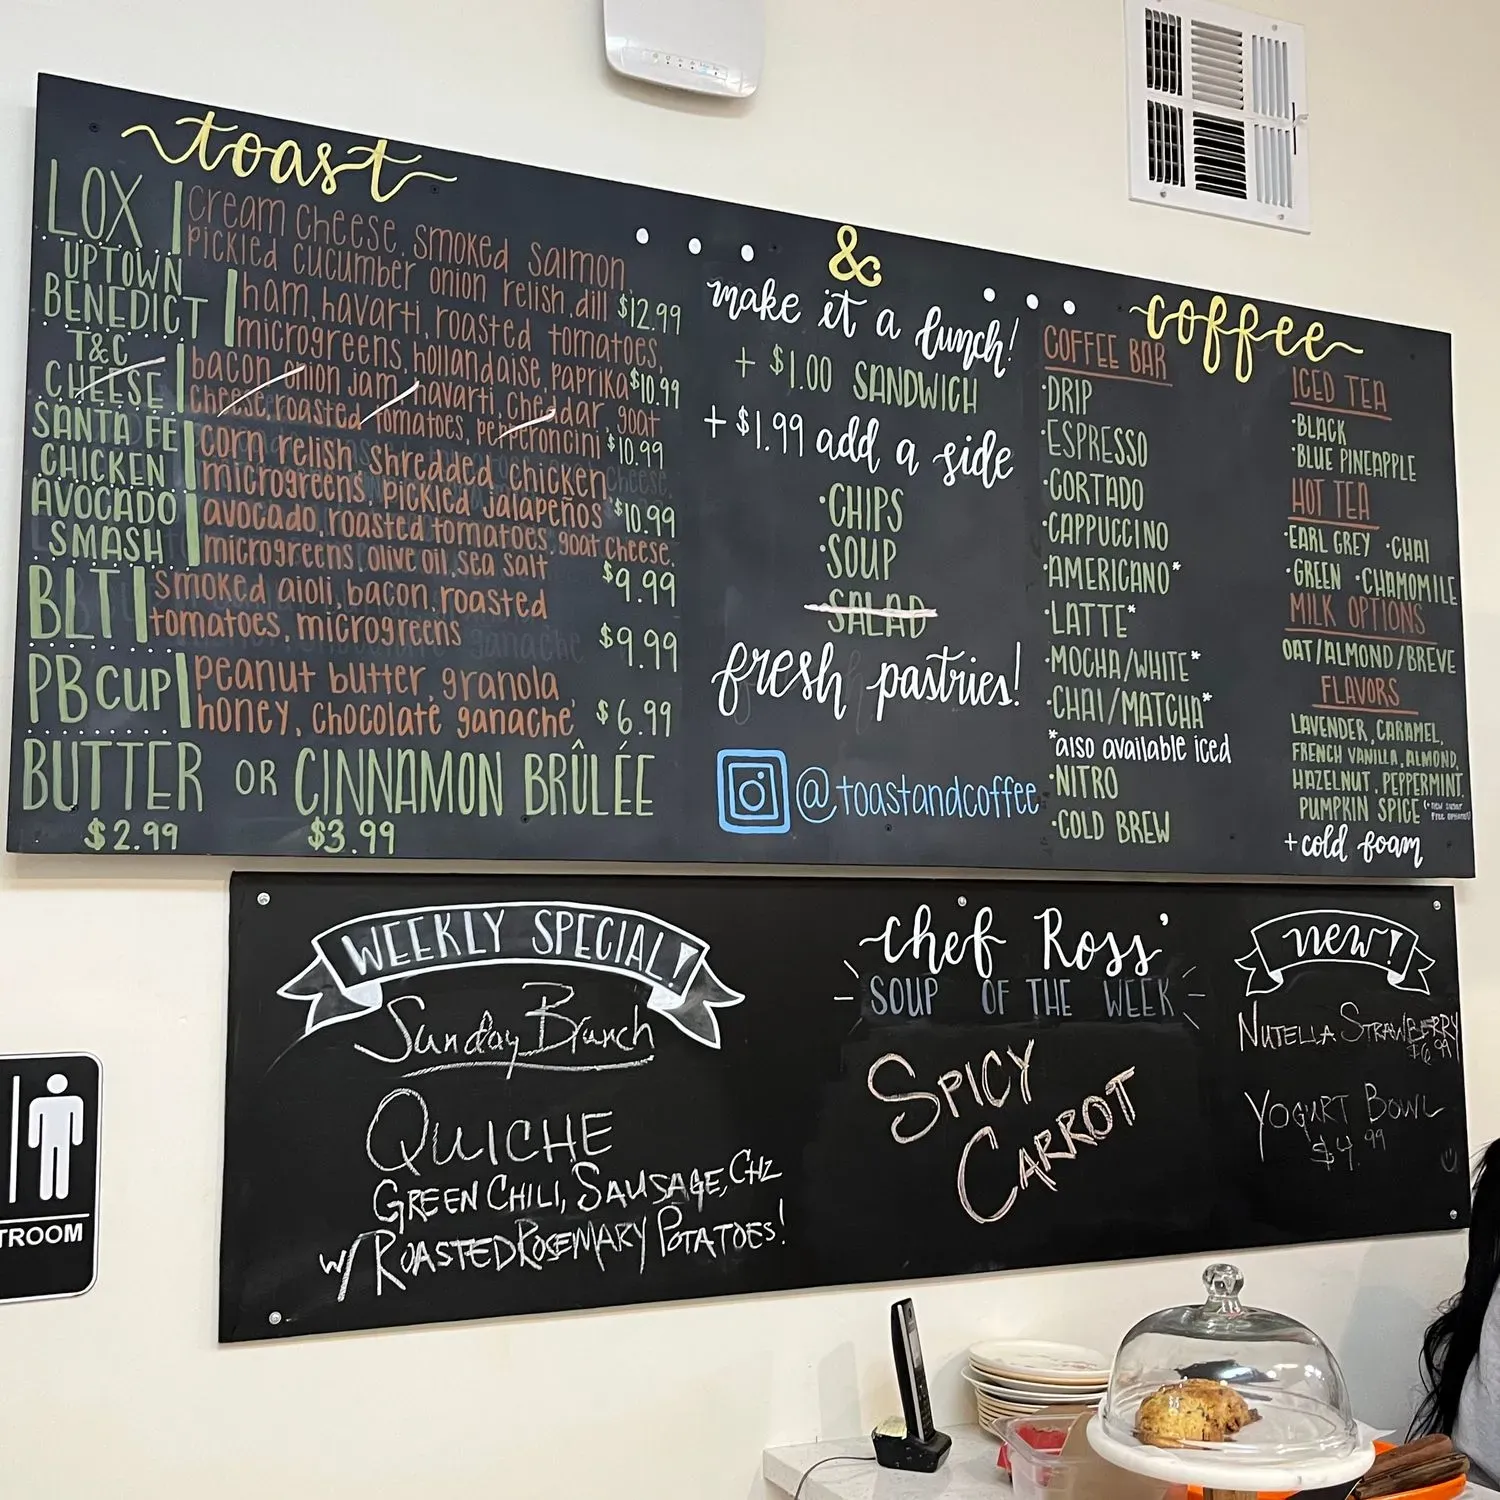 toast
LOX
cream cheese, smoked salmon,
pickled cucumber onion relish, dill $12.99
UPTOWN
BENEDICT
ham, havarti, roasted tomatoes,
microgreens, hollandaise, paprika $10.99
T&C
CHEESE
bacon onion jam, havarti, cheddar, goat
cheese, roasted tomatoes, pepperoncini $10.99
SANTA FE
CHICKEN
corn relish, shredded chicken
microgreens, pickled jalapeños $10.99
AVOCADO
SMASH
avocado, roasted tomatoes, goat cheese,
microgreens, olive oil, sea salt $9.99
BLT
smoked aioli, bacon, roasted
tomatoes, microgreens $9.99
PB CUP
peanut butter, granola,
honey, chocolate ganache $6.99
BUTTER OR CINNAMON BRÛLÉE
$2.99 $3.99
&
make it a lunch!
+ $1.00 SANDWICH
+ $1.99 add a side
·CHIPS
·SOUP
SALAD
fresh pastries!
@toastandcoffee
coffee
COFFEE BAR
·DRIP
·ESPRESSO
·CORTADO
·CAPPUCCINO
·AMERICANO*
·LATTE*
·MOCHA/WHITE*
·CHAI/MATCHA*
*also available iced
·NITRO
·COLD BREW
ICED TEA
·BLACK
·BLUE PINEAPPLE
HOT TEA
·EARL GREY ·CHAI
·GREEN ·CHAMOMILE
MILK OPTIONS
OAT/ALMOND/BREVE
FLAVORS
LAVENDER, CARAMEL,
FRENCH VANILLA, ALMOND,
HAZELNUT, PEPPERMINT,
PUMPKIN SPICE (*new sugar
free options!)
+cold foam
WEEKLY SPECIAL!
Sunday Brunch
QUICHE
GREEN CHILI, SAUSAGE, CHZ
w/ ROASTED ROSEMARY POTATOES!
chef Ross'
SOUP OF THE WEEK
SPICY
CARROT
new!
NUTELLA STRAWBERRY
$6.99
YOGURT BOWL
$4.99
TROOM